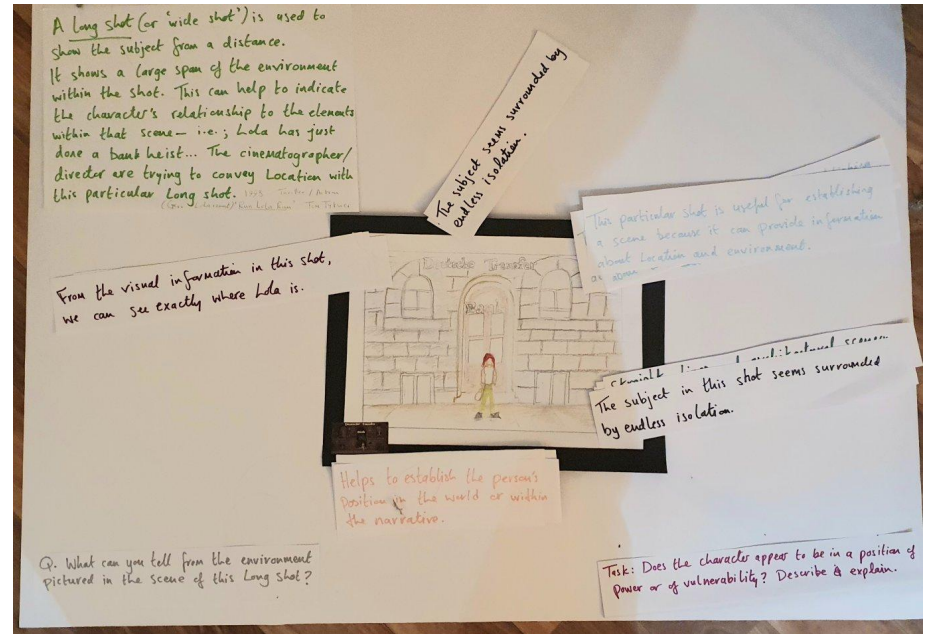 A Long shot (or 'wide shot') is used to
show the subject from a distance.
It shows a large span of the environment
within the shot. This can help to indicate
the character's relationship to the elements
within that scene— i.e.; Lola has just
done a bank heist... The cinematographer/
director are trying to convey Location with
this particular Long shot.
The subject seems surrounded by
endless isolation.
This particular shot is useful for establishing
a scene because it can provide information
about Location and environment.
From the visual information in this shot,
we can see exactly where Lola is.
Transfer
The subject in this shot seems surrounded
by endless isolation.
Helps to establish the person's
position in the world or within
the narrative.
Q. What can you tell from the environment
pictured in the scene of this Long shot?
Task: Does the character appear to be in a position of
power or of vulnerability? Describe & explain.